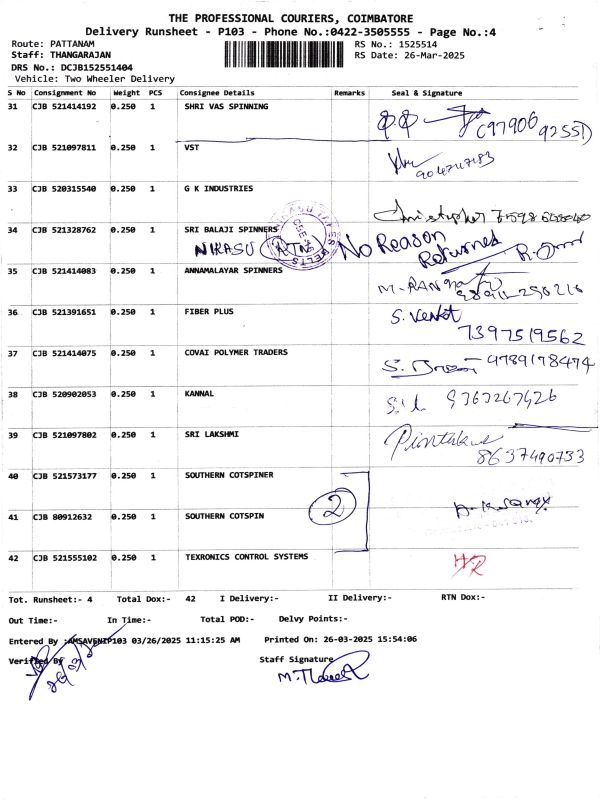 THE PROFESSIONAL COURIERS, COIMBATORE
Delivery Runsheet - P103 - Phone No.:0422-3505555 - Page No.:4
Route: PATTANAM
RS No.: 1525514
Staff: THANGARAJAN
RS Date: 26-Mar-2025
DRS No.: DCJB152551404
Vehicle: Two Wheeler Delivery
S No Consignment No Weight PCS Consignee Details Remarks Seal & Signature
31 CJB 521414192 0.250 1 SHRI VAS SPINNING
32 CJB 521097811 0.250 1 VST
33 CJB 520315540 0.250 1 G K INDUSTRIES
Christopher
34 CJB 521328762 0.250 1 SRI BALAJI SPINNERS
NIKASU RTN No Reason
Returned
35 CJB 521414083 0.250 1 ANNAMALAYAR SPINNERS
36 CJB 521391651 0.250 1 FIBER PLUS
S. Venkat
7397519562
37 CJB 521414075 0.250 1 COVAI POLYMER TRADERS
9789178474
38 CJB 520902053 0.250 1 KANNAL
9363267426
39 CJB 521097802 0.250 1 SRI LAKSHMI
8637490733
40 CJB 521573177 0.250 1 SOUTHERN COTSPINER
2
41 CJB 80912632 0.250 1 SOUTHERN COTSPIN
42 CJB 521555102 0.250 1 TEXRONICS CONTROL SYSTEMS
Tot. Runsheet:- 4 Total Dox:- 42 I Delivery:- II Delivery:- RTN Dox:-
Out Time:- In Time:- Total POD:- Delvy Points:-
Entered By :AMSAVENIP103 03/26/2025 11:15:25 AM Printed On: 26-03-2025 15:54:06
Verified By Staff Signature